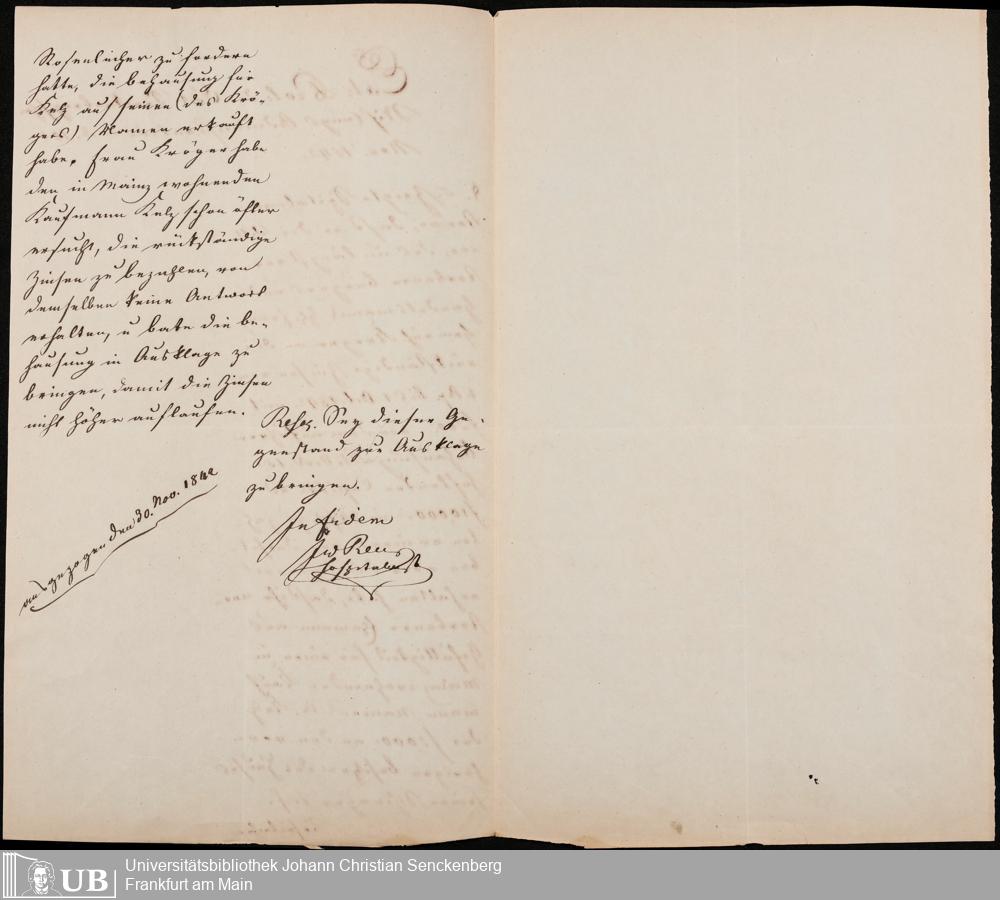 Rosenlecher zu fordern
hatte, die Behausung für
Kelz auf seinen (des Krö-
gers) Namen erkauft
habe, Frau Kröger habe
den in Mainz wohnenden
Kaufmann Kelz schon öfter
ersucht, die rückständige
Zinsen zu bezahlen, von
demselben keine Antwort
erhalten, u bate die Be-
hausung in Ausklage zu
bringen, damit die Zinsen
nicht höher auflaufen.
Resol. Sey dieser Ge-
genstand zur Ausklage
zu bringen.
In fidem
ausgezogen den 30. Nov. 1842
UB
Universitätsbibliothek Johann Christian Senckenberg
Frankfurt am Main